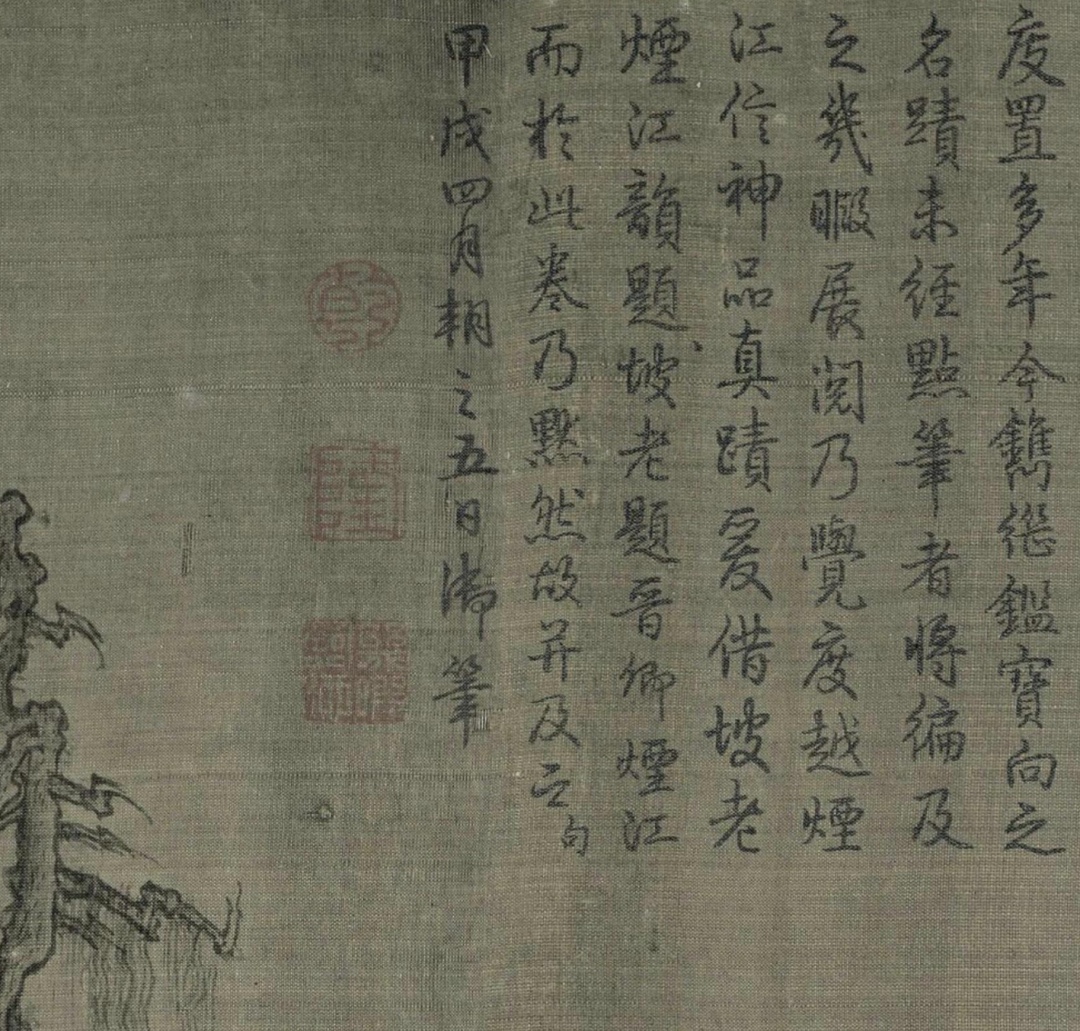 度置多年今鐫繼鑑寶向之
名蹟未經點筆者將徧及
之幾暇展閱乃覺度越煙
江信神品真蹟爰借坡老
煙江韻題坡老題晉卿煙江
而於此卷乃默然故并及之句
甲戌四月朝之五日御筆
乾
隆